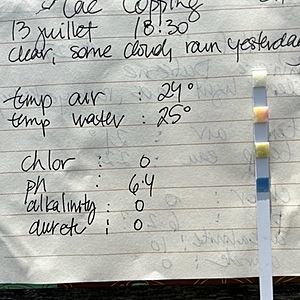 Lac Copping
13 juillet 18:30
clear, some clouds, rain yesterday
temp air : 24°
temp water : 25°
chlor : 0
ph : 6.4
alkalinity : 0
dureté : 0